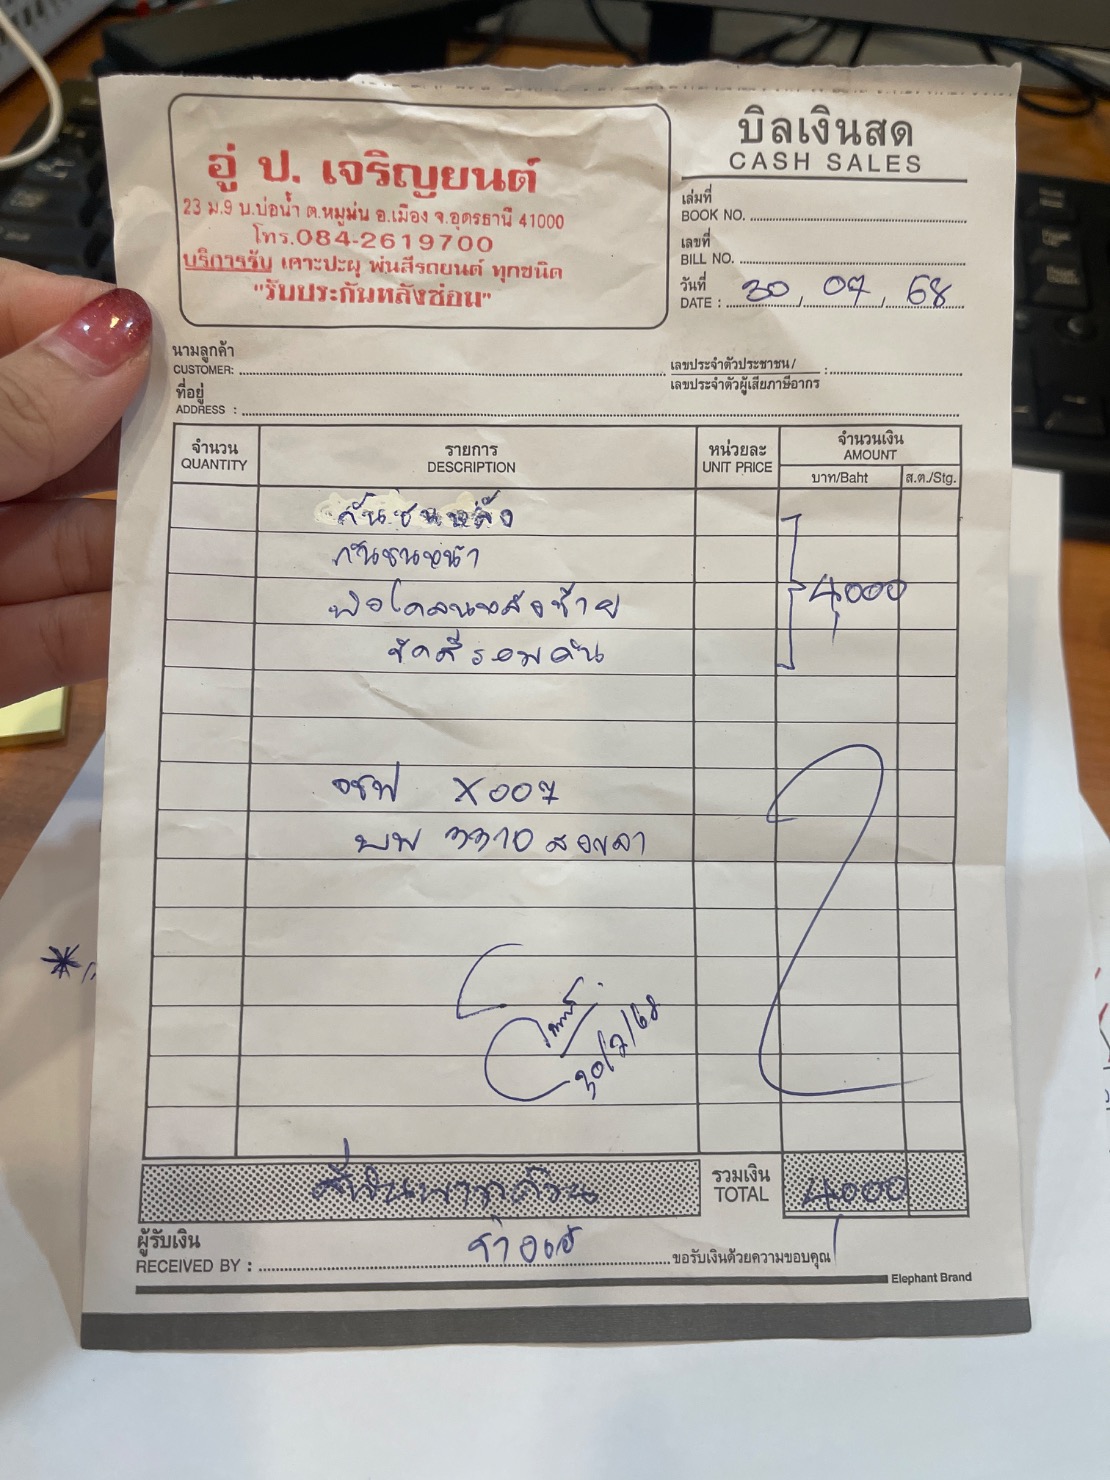 อู่ ป. เจริญยนต์
23 ม.9 บ.บ่อน้ำ ต.หมูม่น อ.เมือง จ.อุดรธานี 41000
โทร.084-2619700
บริการรับ เคาะปะผุ พ่นสีรถยนต์ ทุกชนิด
"รับประกันหลังซ่อม"
บิลเงินสด
CASH SALES
เล่มที่
BOOK NO.
เลขที่
BILL NO.
วันที่
DATE : 30 / 07 / 68
นามลูกค้า
CUSTOMER:
เลขประจำตัวประชาชน/
เลขประจำตัวผู้เสียภาษีอากร :
ที่อยู่
ADDRESS :
จำนวน รายการ หน่วยละ จำนวนเงิน
QUANTITY DESCRIPTION UNIT PRICE AMOUNT
บาท/Baht ส.ต./Stg.
กันชนหลัง
กันชนหน้า
4,000
ขัดสีรอบคัน
X007
3310 สงขลา
30/7/68
สี่พันบาทถ้วน
รวมเงิน
TOTAL 4,000
ผู้รับเงิน
RECEIVED BY : ขอรับเงินด้วยความขอบคุณ
Elephant Brand